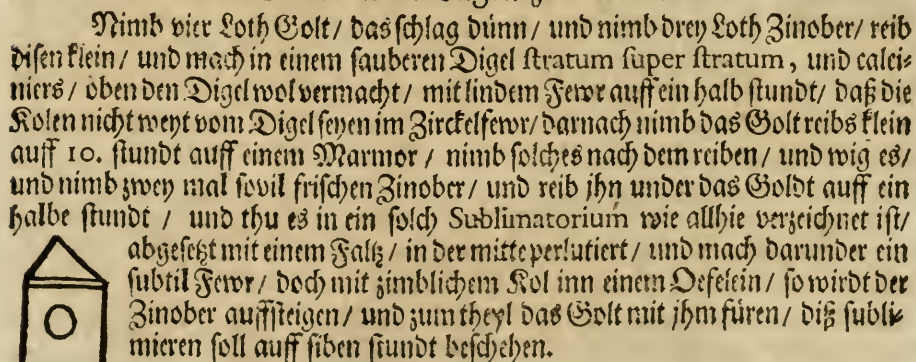 Nimb vier Loth Golt/ das schlag dünn/ und nimb drey Loth Zinober/ reib
disen klein/ und mach in einem sauberen Digel stratum super stratum, und calci⸗
niers/ oben den Digel wol vermacht/ mit lindem Fewr auff ein halb stundt/ daß die
Kolen nicht weyt vom Digel seyen im Zirckelfewr/ darnach nimb das Golt reibs klein
auff 10. stundt auff einem Marmor/ nimb solches nach dem reiben/ und wig es/
und nimb zwey mal sovil frischen Zinober/ und reib jhn under das Goldt auff ein
halbe stundt/ und thu es in ein solch Sublimatorium wie allhie verzeichnet ist/
abgesetzt mit einem Faltz/ in der mitte perlutiert/ und mach darunder ein
subtil Fewr/ doch mit zimblichem Kol inn einem Oefelein/ so wirdt der
Zinober auffsteigen/ und zum theyl das Golt mit jhm füren/ diß subli⸗
mieren soll auff siben stundt beschehen.